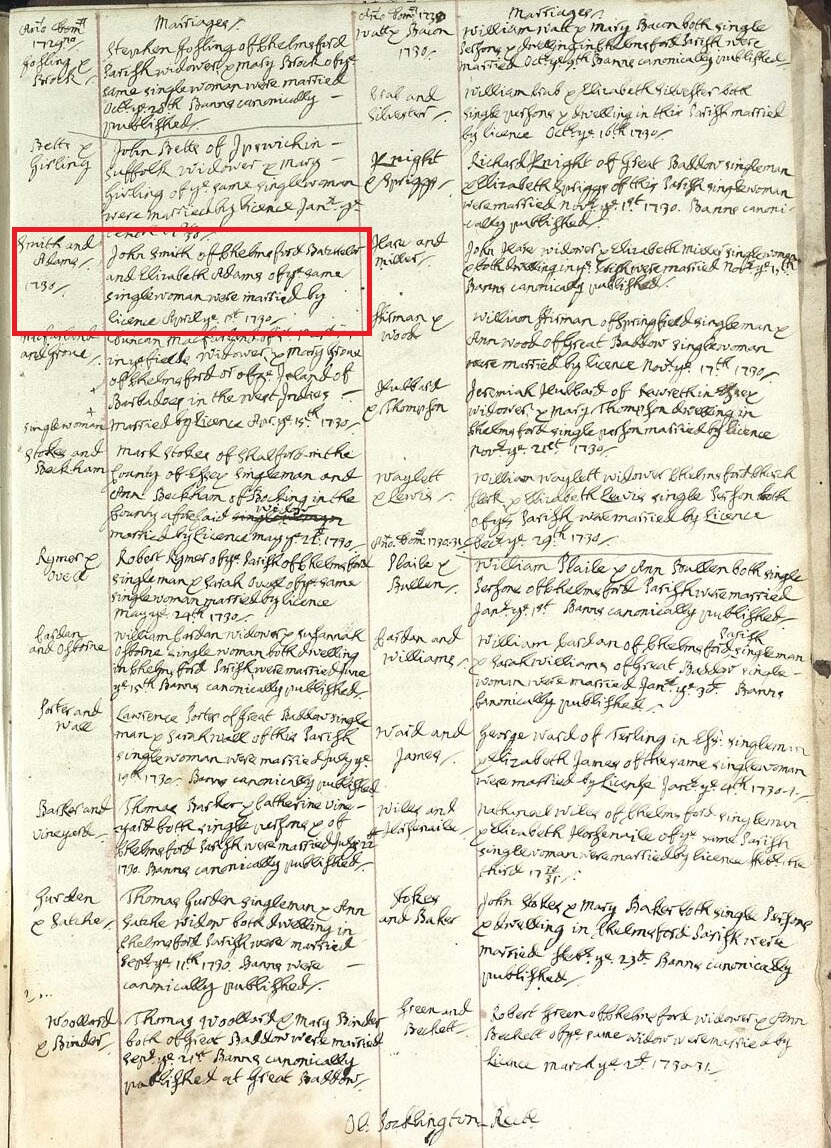 Marriages
Gosling &
Brock
Stephen Gosling of Chelmsford
Parish widower & Mary Brock of ye
same singlewoman were married
Octr ye 28th Banns canonically
published
Betts &
Girling
John Betts of Ipswich in
Suffolk widower & Mary
Girling of ye same singlewoman
were married by licence Janr ye
Smith and
Adams
1730
John Smith of Chelmsford Batchelor
and Elizabeth Adams of ye same
singlewoman were married by
licence April ye 1st 1730
and Grove
Duncan
widower & Mary Grove
of Chelmsford or of ye Island of
Barbadoes in the West Indies
singlewoman
married by licence Apr. ye 15th 1730
Stokes and
Beckham
Mark Stokes of Shalford in the
County of Essex singleman and
Ann Beckham of Bocking in the
County aforesaid widow
married by Licence May ye 21st 1730
Rymer &
Robert Rymer of ye Parish of Chelmsford
singleman & Sarah of ye same
singlewoman married by licence
May ye 24th 1730
Cardan
and Osborne
William Cardan widower & Susannah
Osborne singlewoman both dwelling
in Chelmsford Parish were married June
ye 15th Banns canonically published
Porter and
Wall
Lawrence Porter of Great Baddow single
man & Sarah Wall of this Parish
singlewoman were married July ye
19th 1730 Banns canonically published
Barker and
Vineyard
Thomas Barker & Catherine Vine
yard both single persons & of
Chelmsford Parish were married July 22
1730. Banns canonically published
Gurden
&
Thomas Gurden singleman & Ann
widow both dwelling in
Chelmsford Parish were married
Sept ye 11th 1730. Banns were
canonically published
Woollard
& Binder
Thomas Woollard & Mary Binder
both of Great Baddow were married
Sept ye 21st Banns canonically
published at Great Baddow
Marriages
Watt & Bacon
1730
William Watt & Mary Bacon both single
Persons & dwelling in Chelmsford Parish were
married Oct ye 9th Banns canonically published
and
Silvester
William & Elizabeth Silvester both
single persons & dwelling in this Parish married
by licence Oct ye 16th 1730
Knight
& Spriggs
Richard Knight of Great Baddow singleman
& Elizabeth Spriggs of this Parish singlewoman
were married Novr ye 1st 1730. Banns canoni-
cally published
Hare and
Miller
John Hare widower & Elizabeth Miller singlewoman
both dwelling in ys Parish were married Novr ye 15th
Banns canonically published
&
Wood
William of Springfield singleman &
Ann Wood of Great Baddow singlewoman
were married by licence Novr ye 17th 1730
Hubbard
& Thompson
Jeremiah Hubbard of Rawreth in Essex
widower & Mary Thompson dwelling in
Chelmsford single person married by licence
Novr ye 21st 1730
Waylett
& Lewis
William Waylett widower Chelmsford
Clerk & Elizabeth Lewis single Person both
of ys Parish were married by Licence
Decr ye 29th 1730
Plaile &
Bullen
William Plaile & Ann Bullen both single
Persons of Chelmsford Parish were married
Janr ye 1st Banns canonically published
Cardan and
Williams
William Cardan of Chelmsford Parish singleman
& Sarah Williams of Great Baddow single-
woman were married Janr ye 3d. Banns
canonically published
Ward and
James
George Ward of Terling in Essx singleman
& Elizabeth James of the same singlewoman
were married by License Janr ye 4th 1730-1
Wiles and
Horsnaile
Nathanael Wiles of Chelmsford singleman
& Elizabeth Horsnaile of ye same Parish
singlewoman were married by licence Febr the
third 17 30/31
Stokes
and Baker
John Stokes & Mary Baker both single Persons
& dwelling in Chelmsford Parish were
married Febr ye 23d. Banns canonically
published
Green and
Beckett
Robert Green of Chelmsford widower & Ann
Beckett of ye same widow were married by
Licence March ye 2d. 1730-31
Pocklington Rect